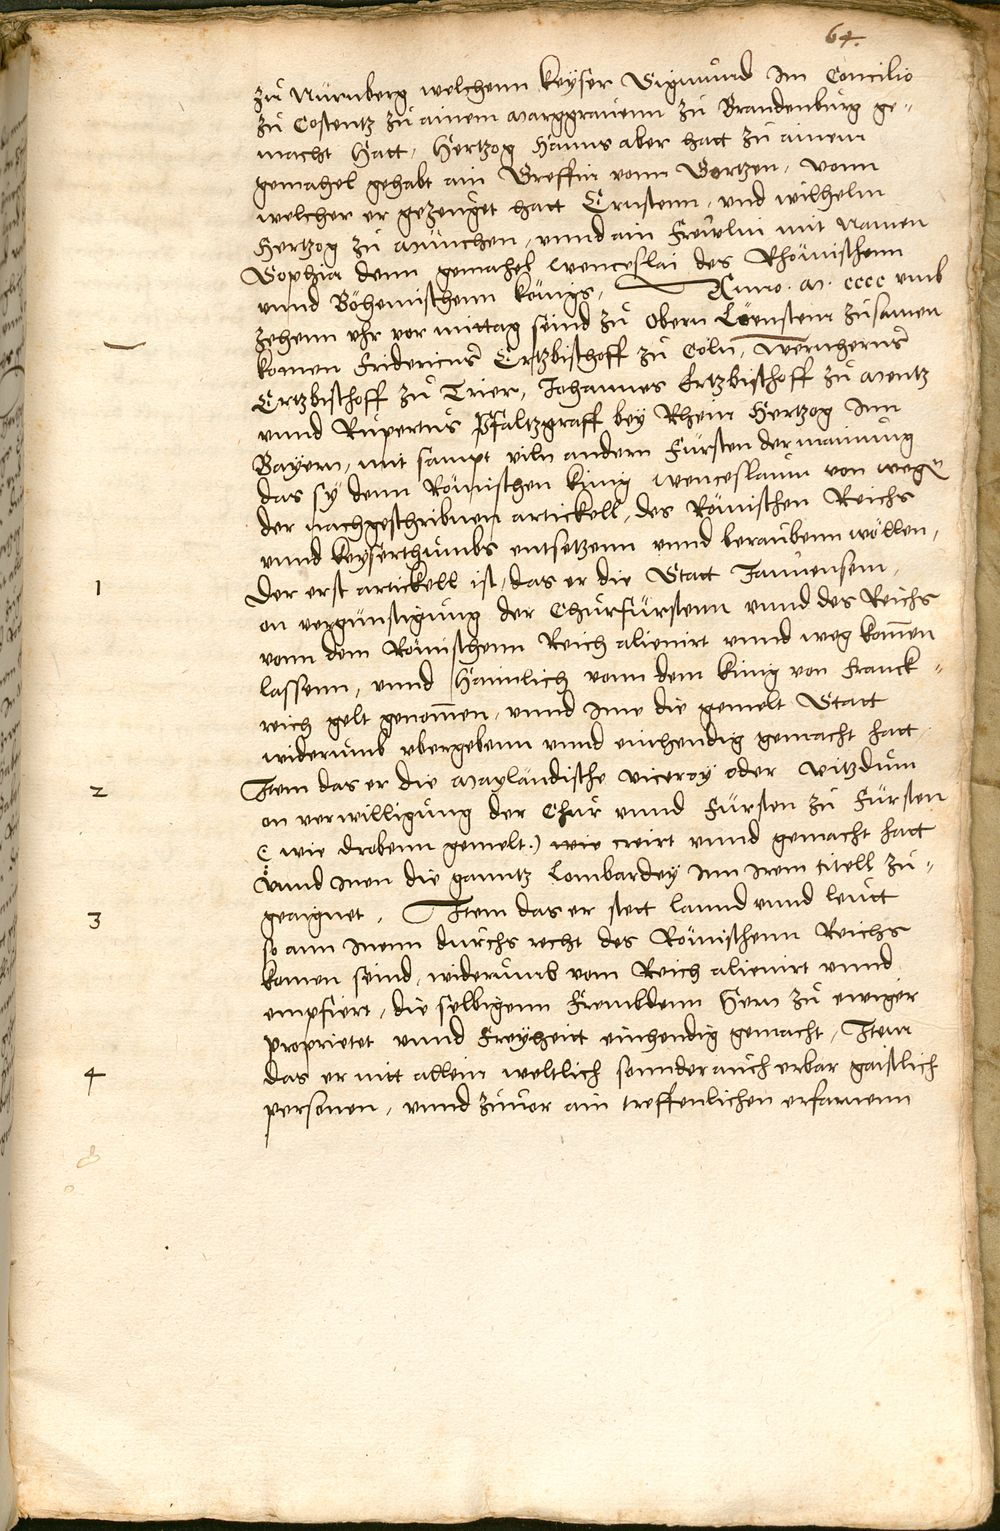 64.
zů Nürnberg welchenn keyser Sigmůnd Im Concilio
zů Costentz zů ainem Marggrauenn zů Brandenbůrg ge-
macht hatt, Hertzog Hanns aber hatt zů ainem
gemahel gehabt ain Greffin vonn Gortzen, vonn
welcher er gezeuget hatt Ernstenn, vnd wilhelm
Hertzog zů München, vnnd ain frewlin mit Namen
Sophia denn gemahel wenceslai des Rhömischenn
vnnd Böhemischenn königs, Anno. M. cccc vmb
zehenn vhr vor mittag seind zů obern Lönstein zůsamen
komen Fridericus Ertzbischoff zů Cöln, wernherus
Ertzbischoff zů Trier, Johannes Ertzbischoff zů Mentz
vnnd Rupertus Pfaltzgraff bey Rhein Hertzog Inn
Bayern, mit sampt viln andern Fürsten der mainůng
das sy denn Römischen king wenceslaum von wegn
der nachgeschribnen artickell, des Römischen Reichs
vnnd keyserthůmbs entsetzenn vnnd beraůbenn wöllen,
1 Der erst artickell ist, das er die Statt Janůensem,
on vergünstigůng der Chůrfürstenn vnnd des Reichs
vonn dem Römischenn Reich alienirt vnnd weg komen
lassenn, vnnd haimlich vonn dem king von Franck-
reich gelt genomen, vnnd Ime die gemelt Statt
widerůmb vbergebenn vnnd einhendig gemacht hatt
2 Item das er die Maylündische viceroy oder vitzdům
on verwilligůng der Chůr vnnd Fürsten zů Fürsten
(wie drobenn gemelt.) wie creirt vnnd gemacht hatt
Vnnd Inen die ganntz Lombardey Inn Irem titell zů-
3 geaignet, Item das er stett lannd vnnd leůtt
so ann Inenn důrchs recht des Römischenn Reichs
komen seind, widerůmb vom Reich alienirt vnnd
empfiert, die selbigenn Frembdenn Hern zů ewiger
proprietet vnnd Freyheitt einhendig gemacht, Item
4 das er nitt allein weltlich sonnder aůch erbar gaistlich
personen, vnnd zůůor ain treffenlichen erfarnenn